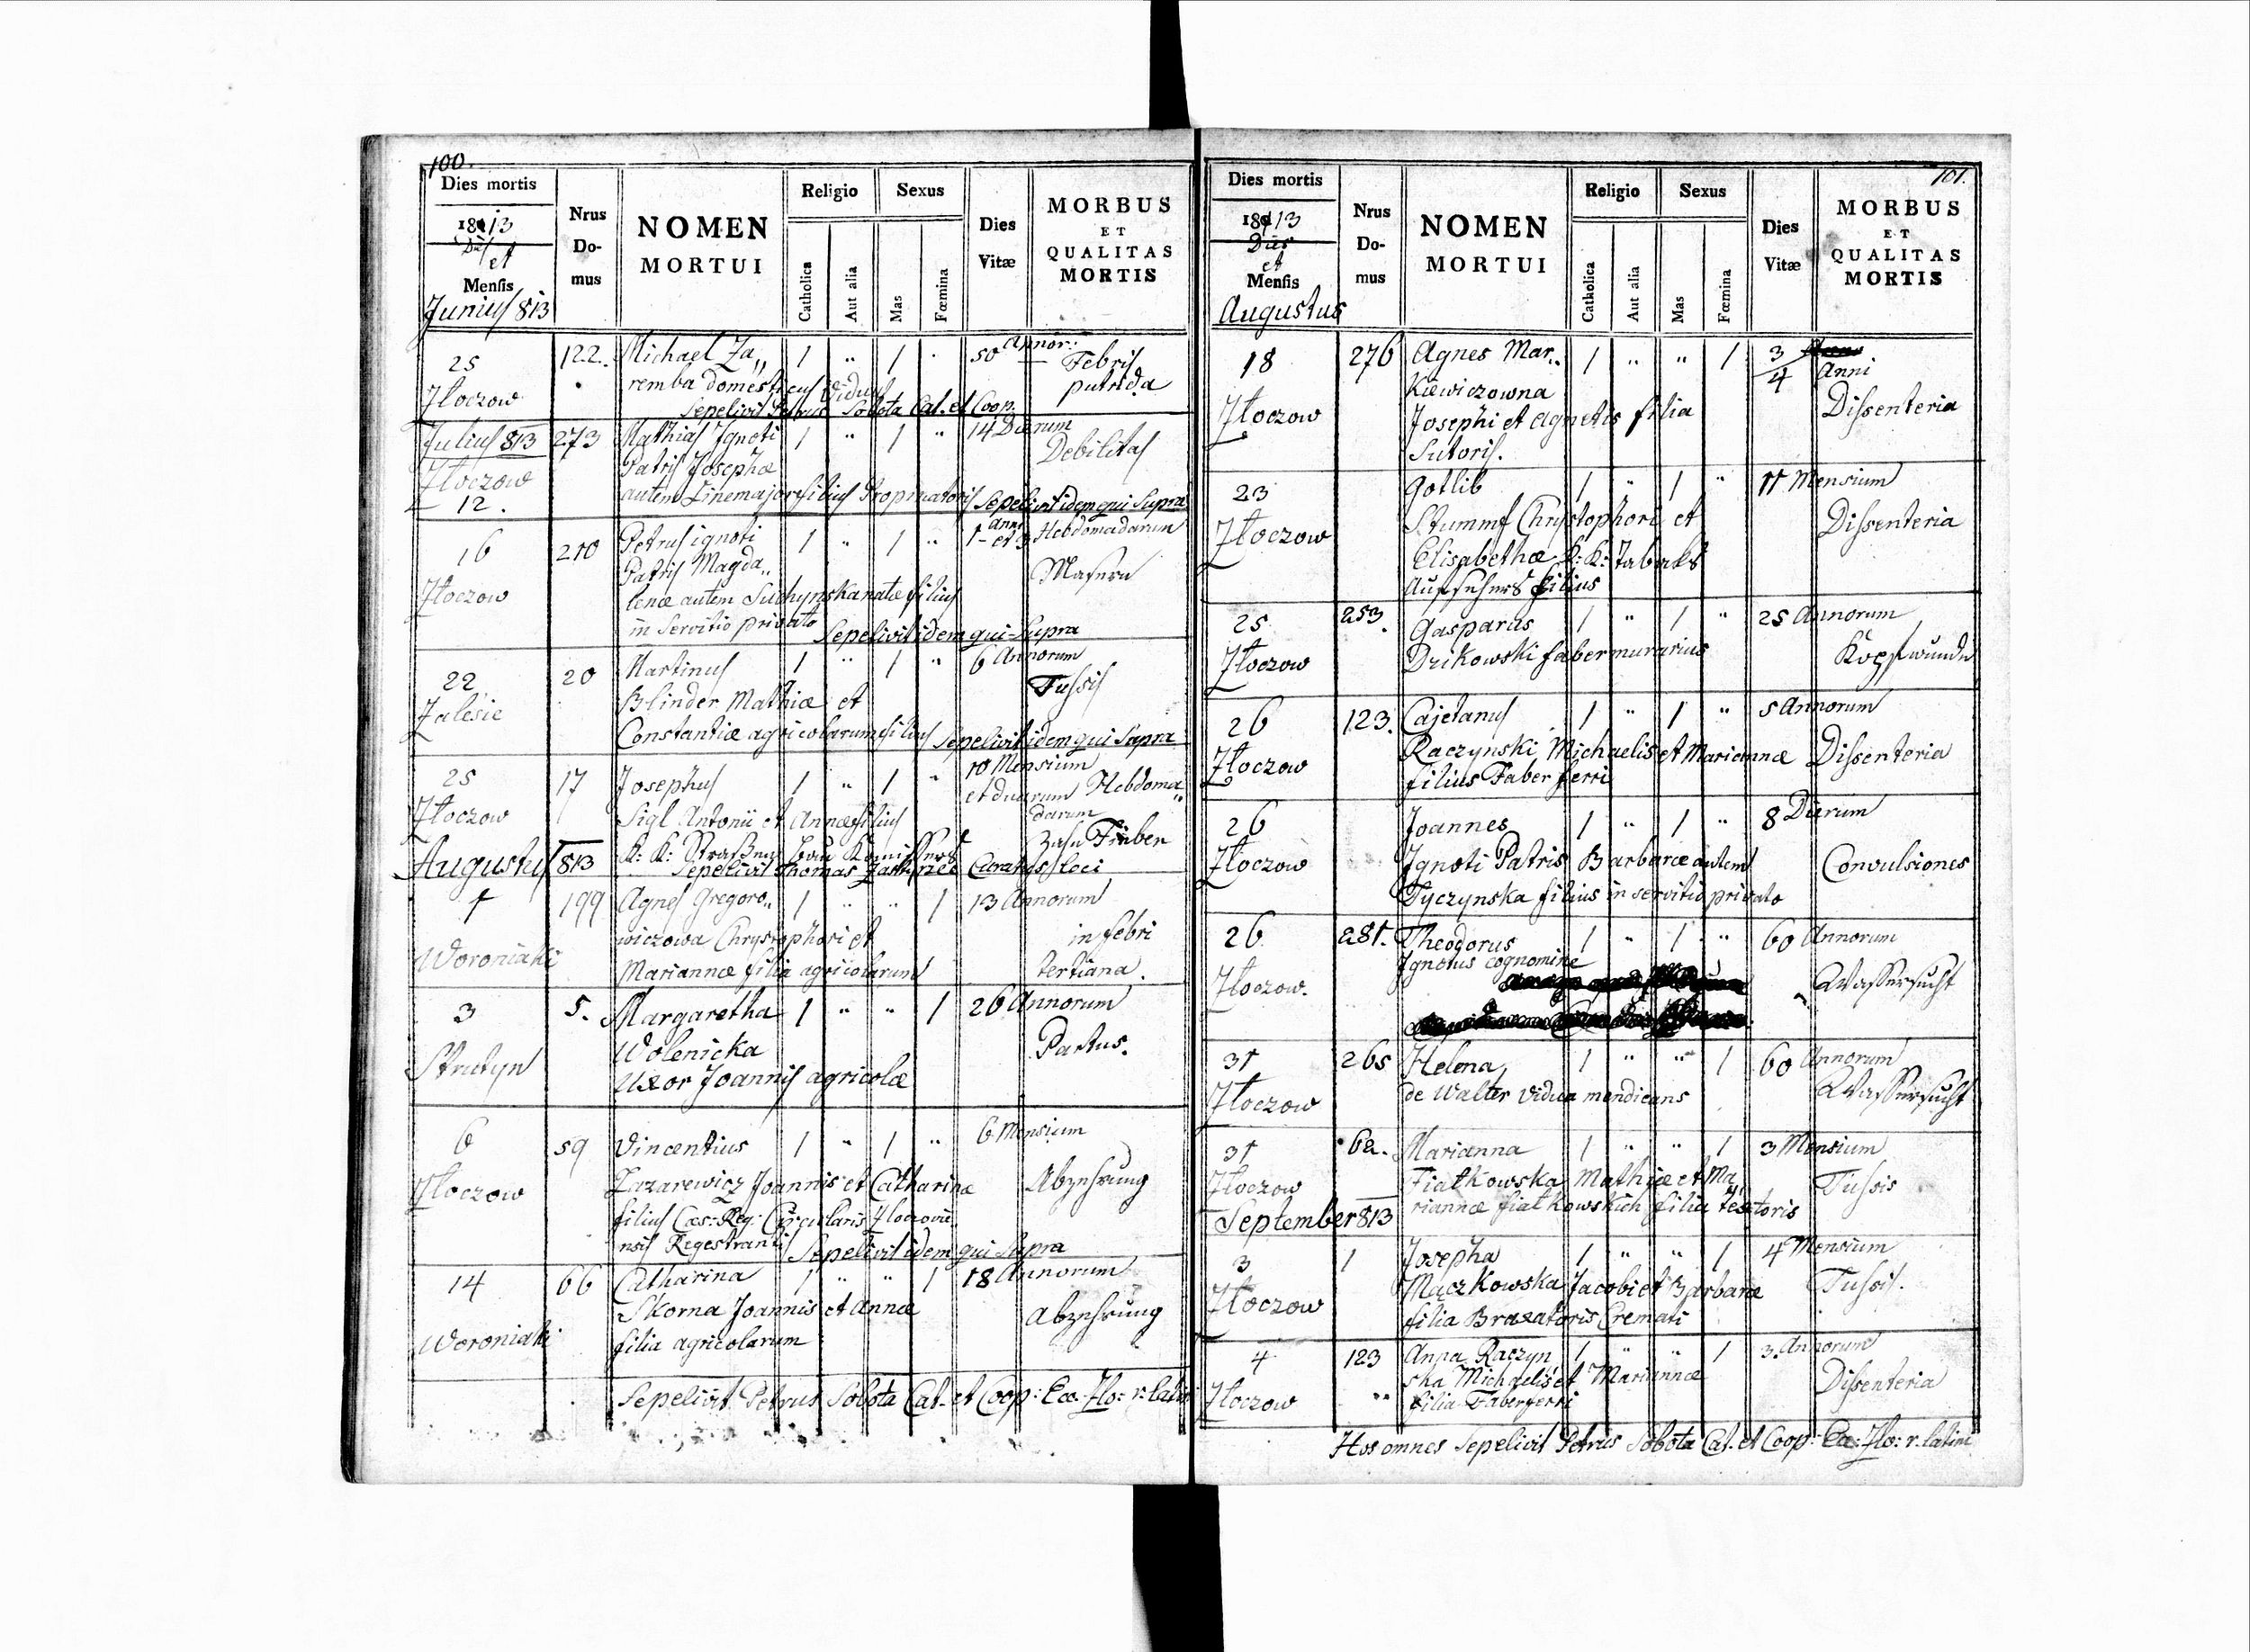 100.
Dies mortis
1813
Dies et
Mensis
Junius 813
Nrus
Do-
mus
NOMEN
MORTUI
Religio
Catholica
Aut alia
Sexus
Mas
Fœmina
Dies
Vitæ
MORBUS
ET
QUALITAS
MORTIS
25 122. Michael Za„ 1 „ 1 „ 50 Annor: Febris
Zloczow remba domesticus Viduus putrida
Sepelivit Petrus Sobota Cat. et Coop.
Julius 813 273 Mathias Ignoti 1 „ 1 „ 14 Dierum
Zloczow Patris Josephæ Debilitas
12. autem filius Propinatoris Sepelivit idem qui Supra
16 210 Petrus ignoti 1 „ 1 „ 1 Anni et 3 Hebdomadarum
Patris Magda„ Masern
Zloczow lenæ autem Suchynska natæ filius
in Servitio privato Sepelivit idem qui Supra
22 20 Martinus 1 „ 1 „ 6 Annorum
Zalesie Blinder Mathiæ et Tussis
Constantiæ agricolarum filius Sepelivit idem qui Supra
25 17 Josephus 1 „ 1 „ 10 Mensium
Zloczow Sigl Antonii et Annæ filius et duarum Hebdoma„
darum
K: K: Straßen bau Zahn Fieber
Augustus 813 Sepelivit Thomas Curatus loci
1 199 Agnes Gregoro„ 1 „ „ 1 13 Annorum
wiczowa Chrystophori et in febri
Woroniaki Mariannæ filia agricolarum tertiana.
3 5. Margaretha 1 „ „ 1 26 Annorum
Wolenicka Partus.
Strutyn Uxor Joannis agricolæ
6 59 Vincentius 1 „ 1 „ 6 Mensium
Zloczow Lazarewicz Joannis et Catharinæ Abzehrung
filius Cæs: Reg: Circularis Zloczovie„
nsis Regestrantis Sepelivit idem qui Supra
14 66 Catharina 1 „ „ 1 18 Annorum
Skorna Joannis et Annæ Abzehrung
Woroniaki filia agricolarum
Sepelivit Petrus Sobota Cat. et Coop: Ecc: Zlo: r: latini
101.
Dies mortis
1813
Dies
et
Mensis
Augustus
Nrus
Do-
mus
NOMEN
MORTUI
Religio
Catkolica
Aut alia
Sexus
Mas
Fœmina
Dies
Vitæ
MORBUS
ET
QUALITAS
MORTIS
18 276 Agnes Mar„ 1 „ „ 1 3/4 Anni
kiewiczowna
Zloczow Josephi et Agnetis filia Dissenteria
Sutoris.
23 Gotlib 1 „ 1 „ 11 Mensium
Zloczow Stummf Chrystophori et Dissenteria
Elisabethæ K: K: Tabaks
Aufsehers filius
25 253. Gasparus 1 „ 1 „ 25 Annorum
Zloczow Dzikowski faber murarius Kopfwunde
26 123. Cajetanus 1 „ 1 „ 5 Annorum
Zloczow Raczynski Michaelis et Mariannæ Dissenteria
filius Faber ferri
26 Joannes 1 „ 1 „ 8 Dierum
Zloczow Ignoti Patris Barbaræ autem Convulsiones
Tyczynska filius in servitio privato
26 281. Theodorus 1 „ 1 „ 60 Annorum
Ignotus cognomine
Zloczow. Wassersucht
31 265 Helena 1 „ „ 1 60 Annorum
Zloczow de Walter vidua mendicans Wassersucht
31 62. Marianna 1 „ „ 1 3 Mensium
Zloczow Fiatkowska Mathiæ et Ma„ Tussis
September 813 riannæ fiatkowskich filia textoris
3 1 Josepha 1 „ „ 1 4 Mensium
Zloczow Mączkowska Jacobi et Barbaræ Tussis.
filia Braxatoris Cremati
4 123 Anna Raczyn„ 1 „ „ 1 3. Annorum
Zloczow ska Michaelis et Mariannæ Dissenteria
filia Faber ferri
Hos omnes Sepelivit Petrus Sobota Cat. et Coop: Ecc: Zlo: r. latini